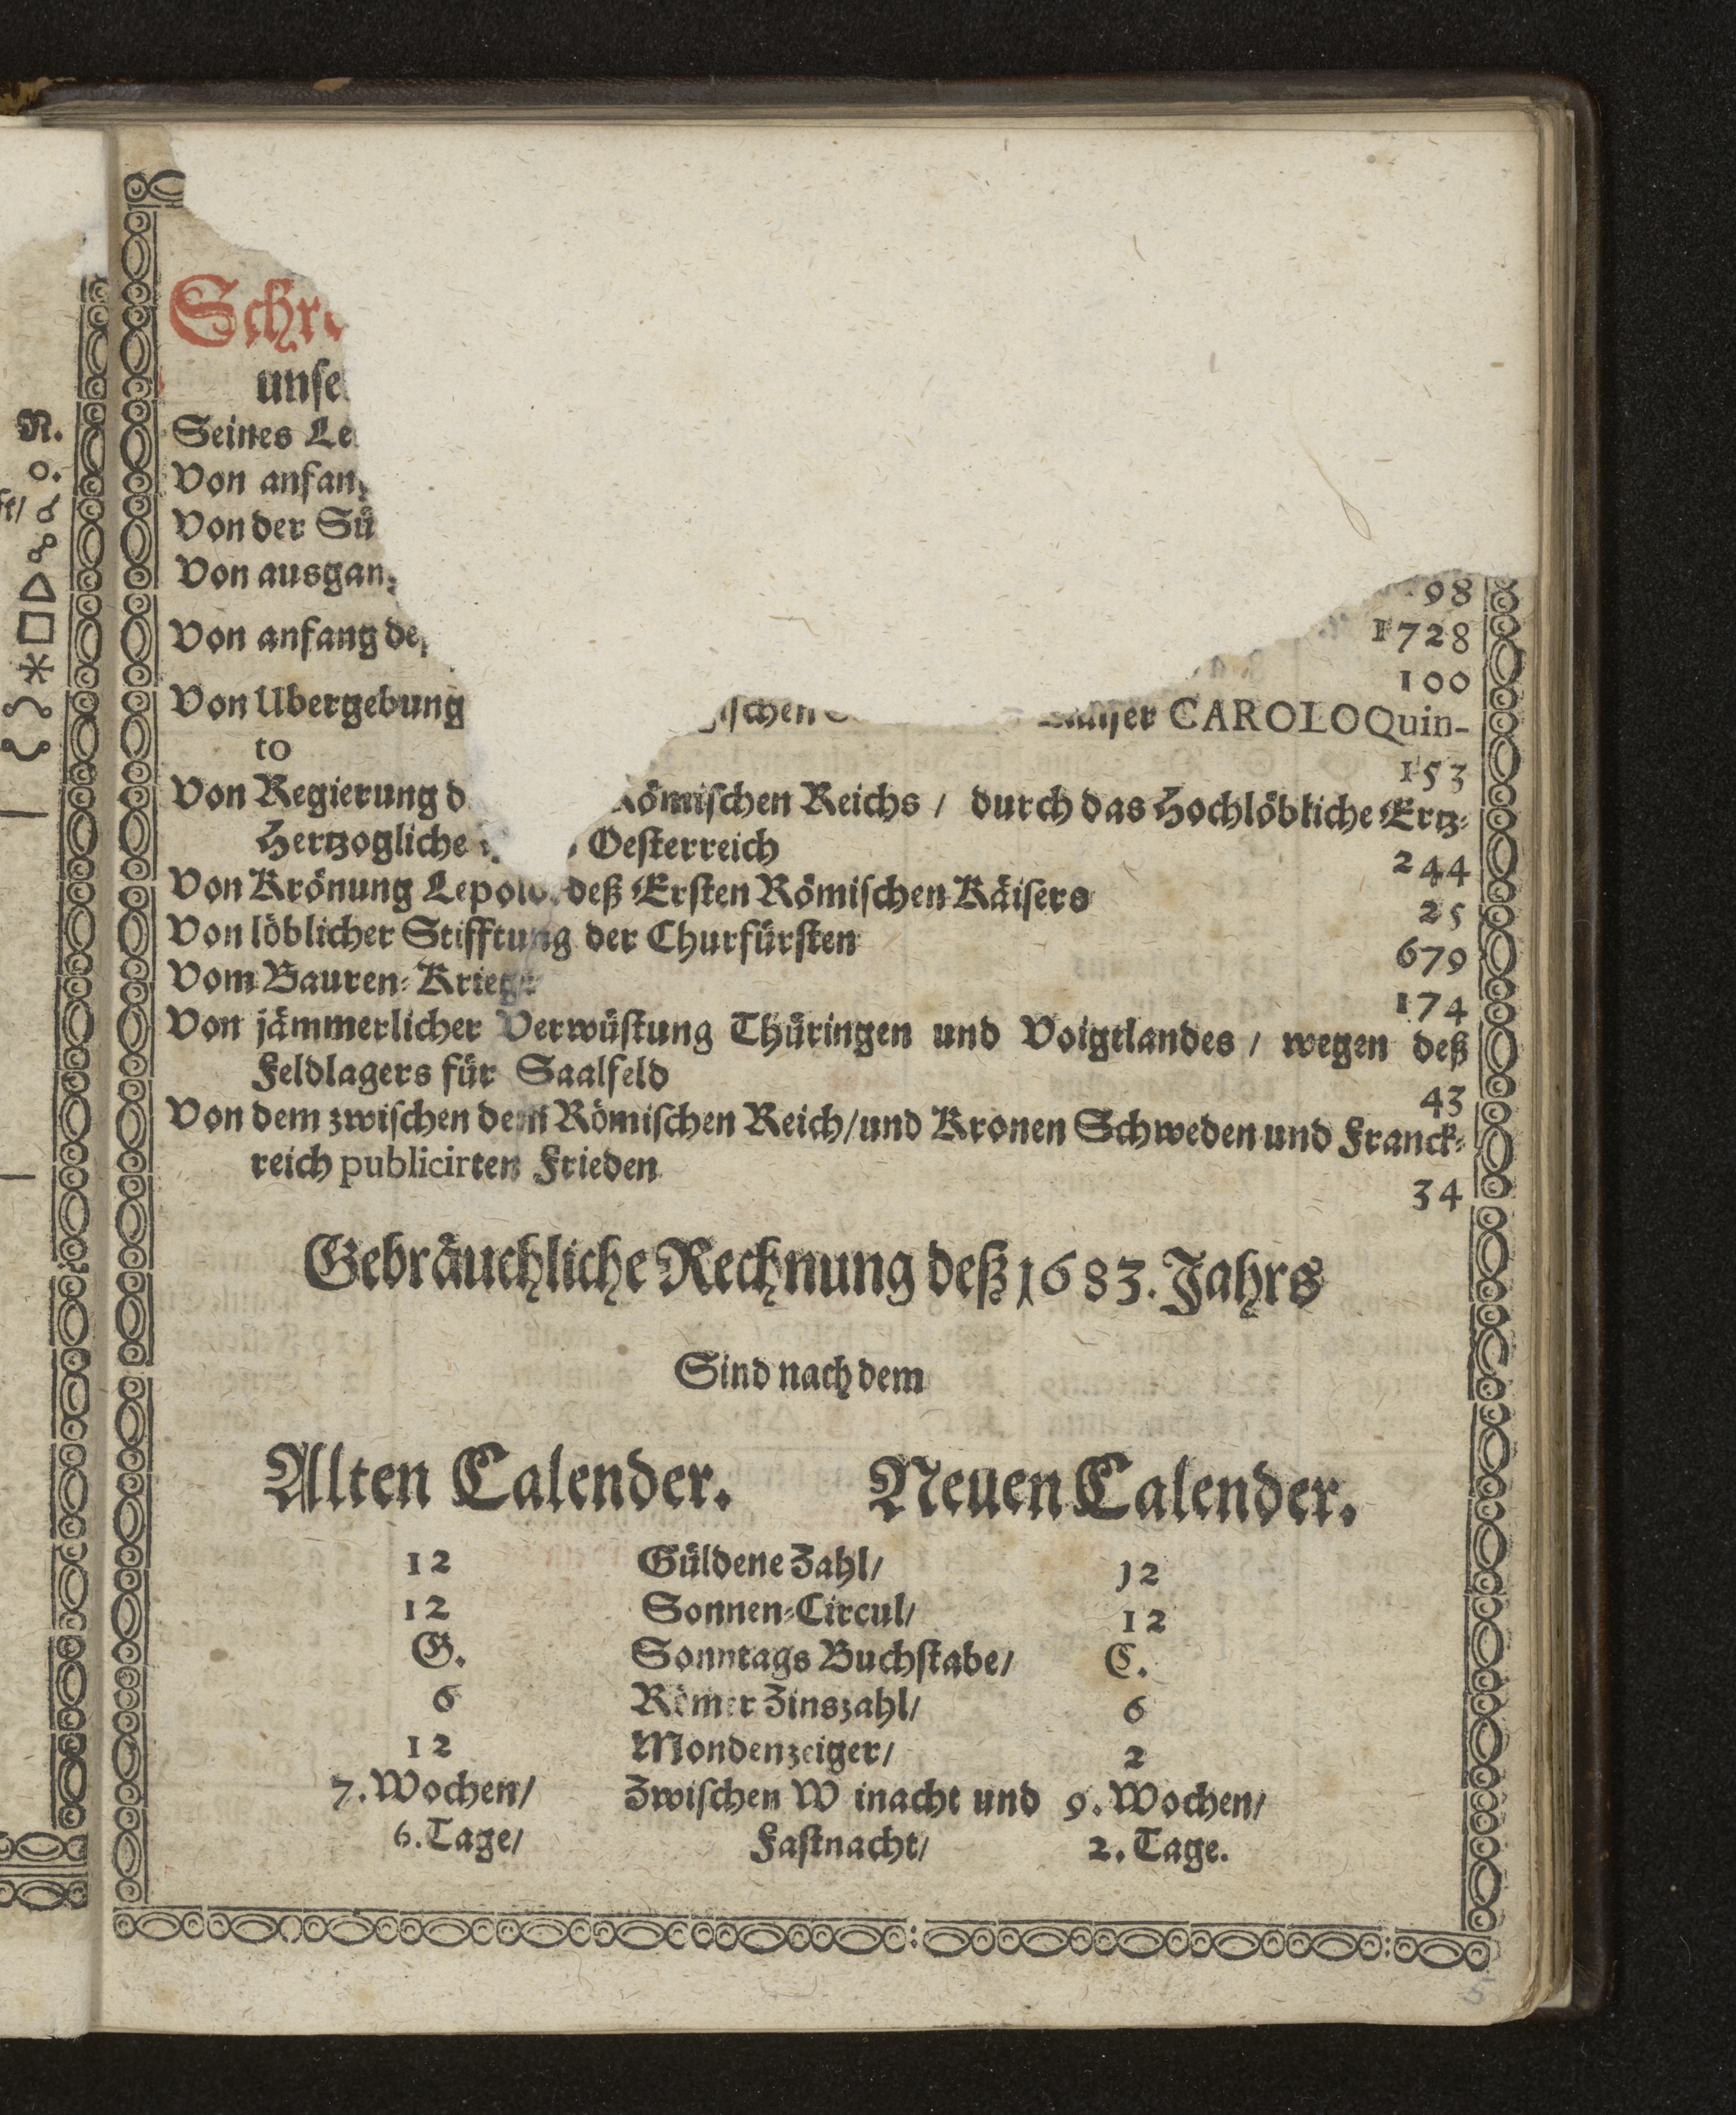 R.
Schre
unse
Seines Le
Von anfang
Von der Sü
Von ausgang
98
Von anfang deß
1728
100
Von Ubergebung ischen Käiser CAROLO Quin-
to
153
Von Regierung d Römischen Reichs / durch das Hochlöbliche Ertz-
Hertzogliche Oesterreich
244
Von Krönung Lepold. deß Ersten Römischen Käisers
25
Von löblicher Stifftung der Churfürsten
679
Vom Bauren-Kriege
174
Von jämmerlicher Verwüstung Thüringen und Voigtlandes / wegen deß
Feldlagers für Saalfeld
43
Von dem zwischen dem Römischen Reich/und Kronen Schweden und Franck-
reich publicirten Frieden
34
Gebräuchliche Rechnung deß 1683. Jahrs
Sind nach dem
Alten Calender. Neuen Calender.
12 Güldene Zahl/ 12
12 Sonnen-Circul/ 12
G. Sonntags Buchstabe/ C.
6 Römer Zinszahl/ 6
12 Mondenzeiger/ 2
7. Wochen/ Zwischen W inacht und 9. Wochen/
6. Tage/ Fastnacht/ 2. Tage.